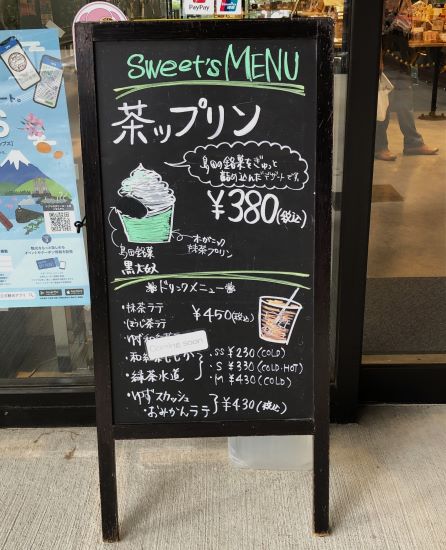 PayPay
Sweet's MENU
茶ップリン
島田の銘菓をぎゅっと
詰め込んだデザートです。
¥380(税込)
島田銘菓
黒大奴
オーガニック
抹茶プリン
ドリンクメニュー
・抹茶ラテ
・ほうじ茶ラテ
¥450(税込)
・ゆず和
Coming soon
・和紅茶
・緑茶水道
・SS ¥230(COLD)
・S ¥330(COLD・HOT)
・M ¥430(COLD)
・ゆずスカッシュ
・おみかんラテ
¥430(税込)